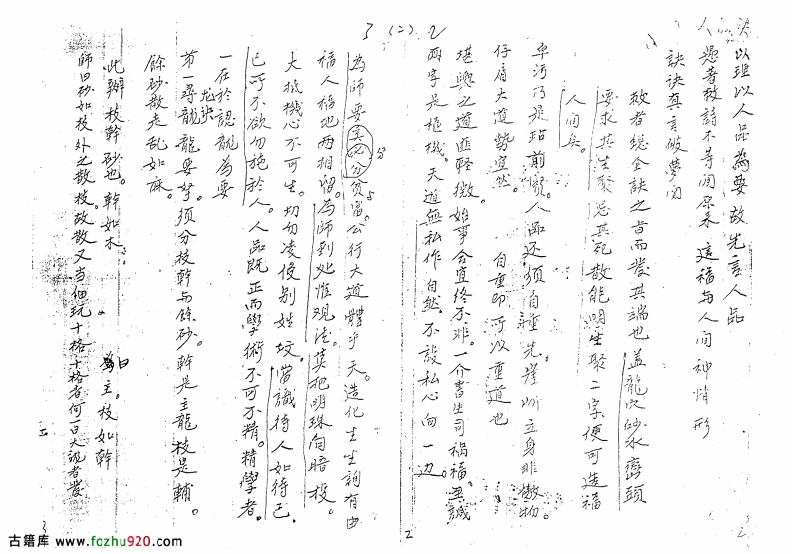 3 (二) 2
決以理以人品為要故先言人品
人憑著教諄不等閒原來這福與人間神情形
訣訣真言破夢間
救者總全訣之旨而發其端也蓋龍穴砂水巒頭
要求其生聚忌其死散能明生聚二字便可造福
人間矣。
卑污仍是站前腳。人品还須自種先。崖岸立身非傲物
仔肩大道勢岸然。自重即可以重道也
堪輿之道匪輕微。始事合宜終不非。一介書生司禍福。丑誠
兩字是樞機。天道無私作自然。不設私心向一边。
為師要富分貧富。公行大道體乎天。造化生生詢有由
福人福地两相留。為師到処惟观法。莫把明珠向暗投。
大抵機心不可生。切勿凌侵別姓坟。當識待人如待己。
已可不欲勿施於人。人品既正而學術不可不精。精學者。
一在於認龍為要
龙訣
第一尋龍龍要孥。須分枝幹与餘砂。幹是主龍枝是輔。
餘砂散走乱如麻。
此辦枝幹砂也。幹如木
為主。枝如幹
師曰砂如枝外之散枝。故散又当但玩十格十格者何一曰大訊者發
2
2
3
古籍库 www.fozhu920.com